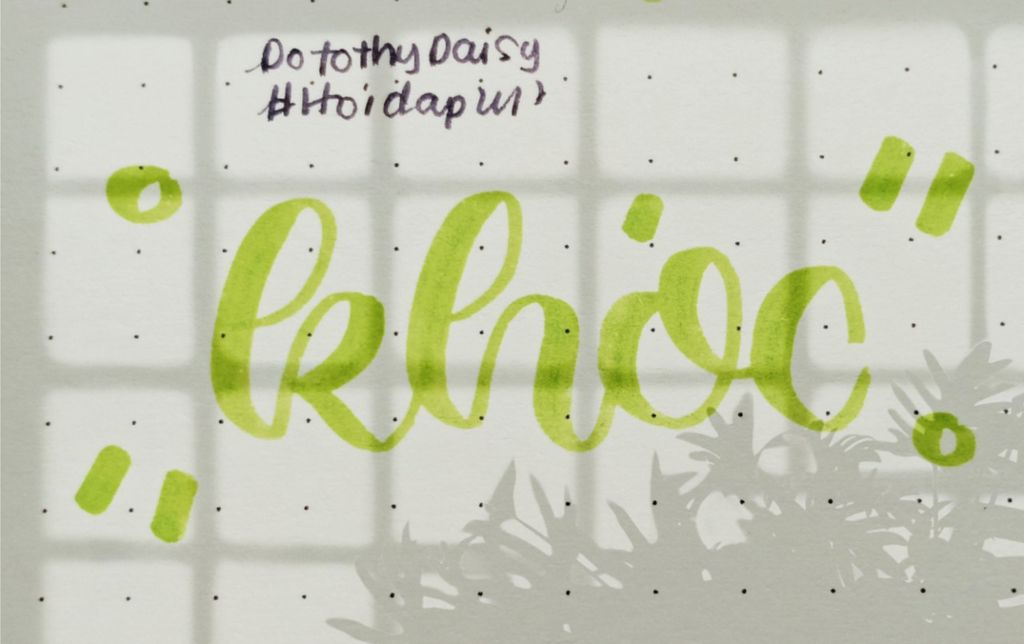 Dotothy Daisy
#Hoidap
khóc